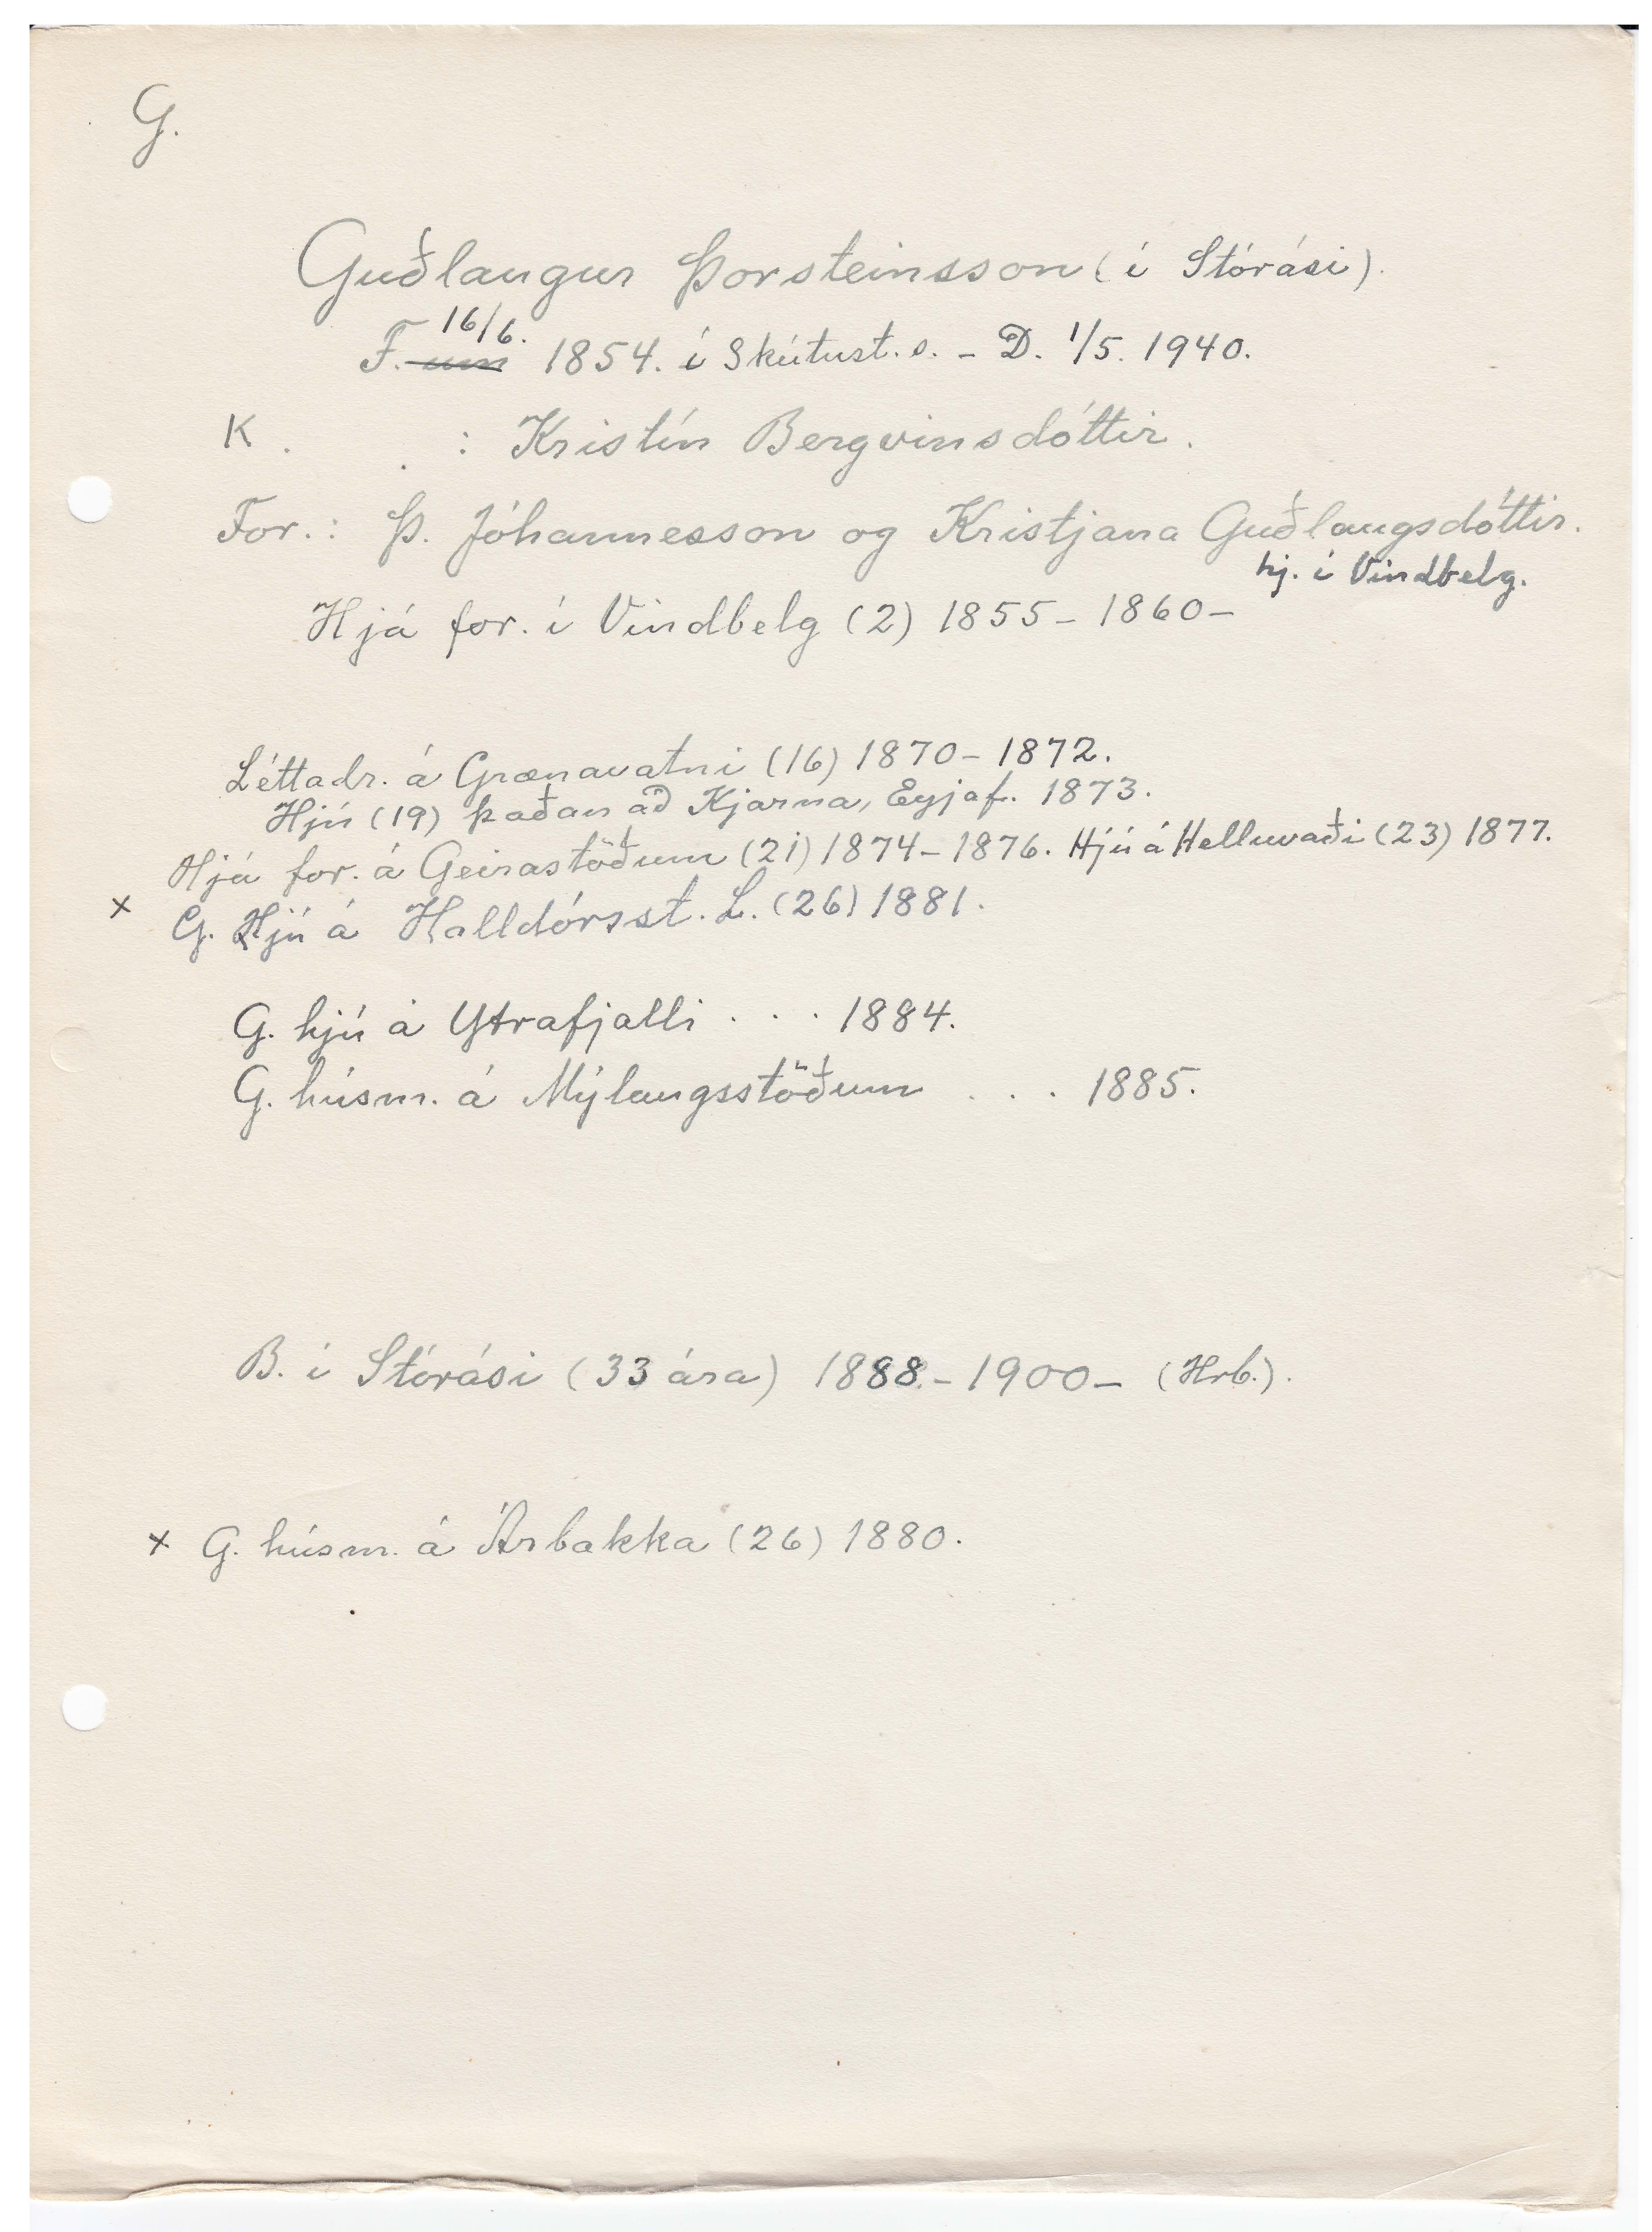 G.
Guðlaugur Þorsteinsson (í Stórási).
F. um 16/6. 1854. í Skútust.s. - D. 1/5. 1940.
K . . : Kristín Bergvinsdóttir.
For.: Þ. Jóhannesson og Kristjana Guðlaugsdóttir.
hj. í Vindbelg.
Hjá for. í Vindbelg (2) 1855 - 1860 -
Léttadr. á Grænavatni (16) 1870 - 1872.
Hjú (19) þaðan að Kjarna, Eyjaf. 1873.
Hjá for. á Geirastöðum (21) 1874 - 1876. Hjú á Helluvaði (23) 1877.
x G. Hjú á Halldórsst. L. (26) 1881.
G. hjú á Ytrafjalli . . . 1884.
G. húsm. á Mýlaugsstöðum . . . 1885.
B. í Stórási (33 ára) 1888. - 1900 - (Hrb.).
x G. húsm. á Árbakka (26) 1880.